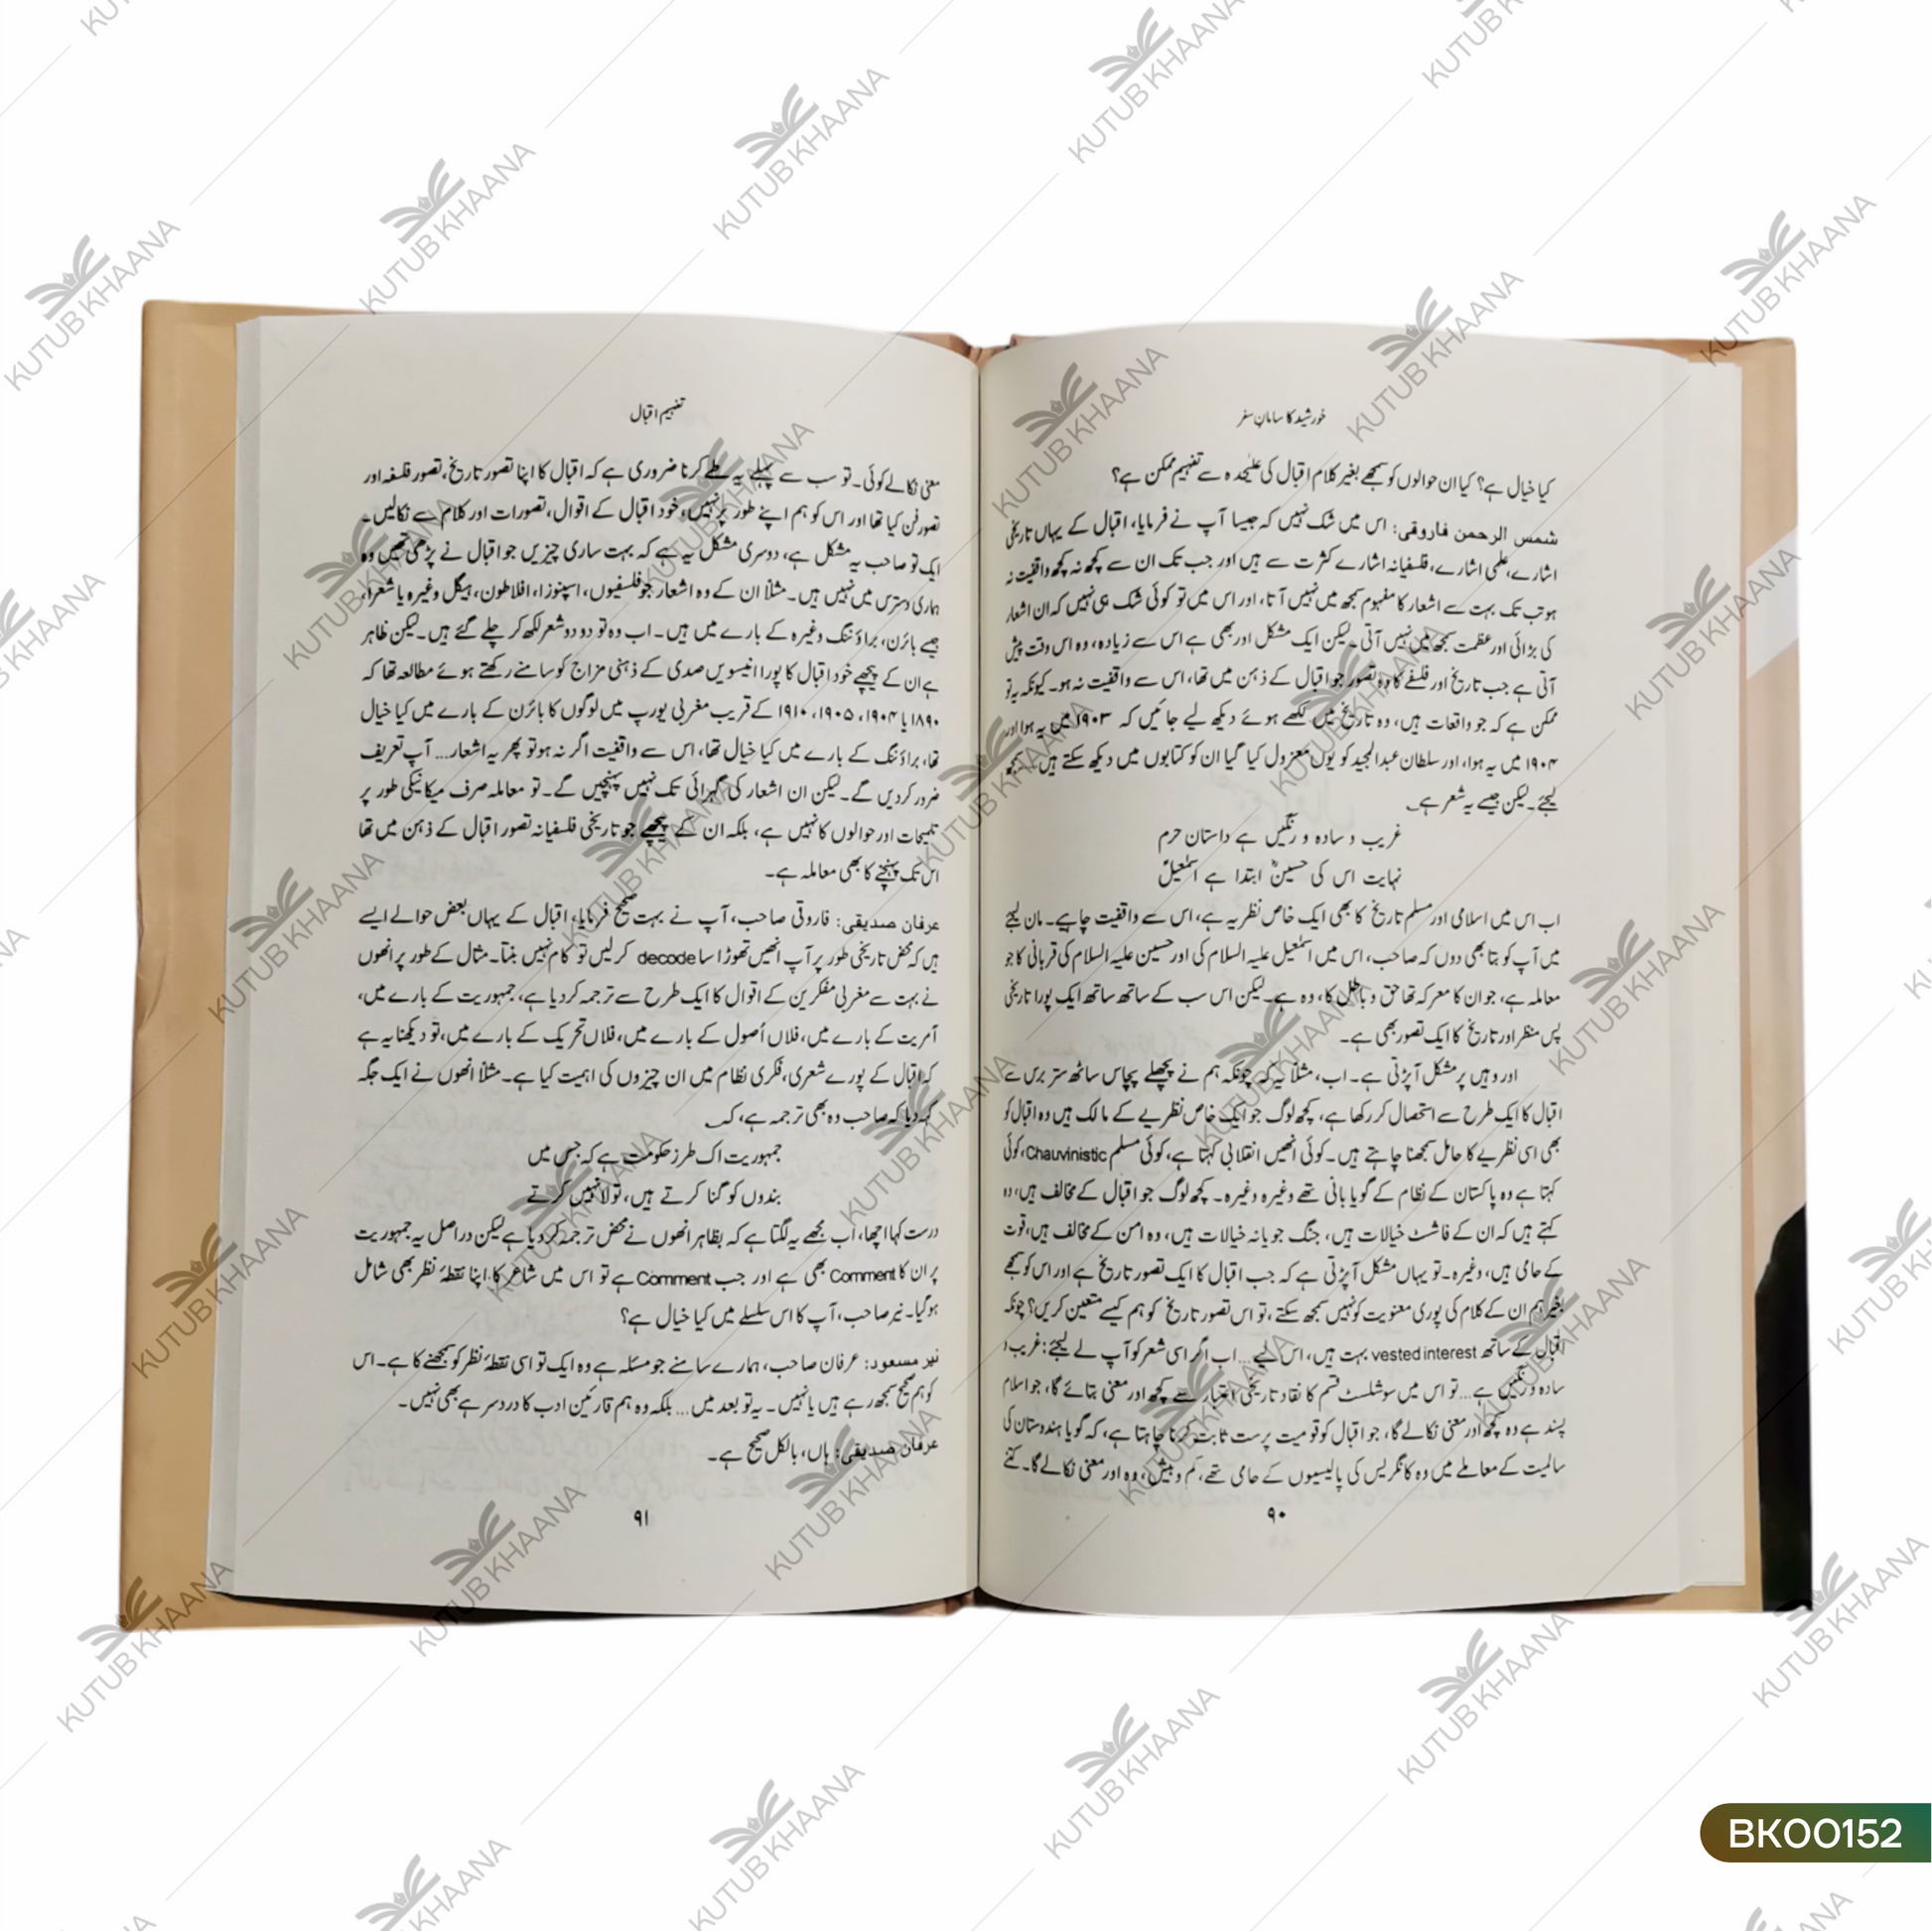 خورشید کا سامانِ سفر
کیا خیال ہے؟ کیا ان حوالوں کو سمجھے بغیر کلام اقبال کی علیٰحدہ سے تفہیم ممکن ہے؟
شمس الرحمن فاروقی: اس میں شک نہیں کہ جیسا آپ نے فرمایا، اقبال کے یہاں تاریخی
اشارے، علمی اشارے، فلسفیانہ اشارے کثرت سے ہیں اور جب تک ان سے کچھ نہ کچھ واقفیت نہ
ہو تب تک بہت سے اشعار کا مفہوم سمجھ میں نہیں آتا، اور اس میں تو کوئی شک ہی نہیں کہ ان اشعار
کی بڑائی اور عظمت سمجھ میں نہیں آتی۔ لیکن ایک مشکل اور بھی ہے اس سے زیادہ، وہ اس وقت پیش
آتی ہے جب تاریخ اور فلسفے کا وہ تصور جو اقبال کے ذہن میں تھا، اس سے واقفیت نہ ہو۔ کیونکہ یہ تو
ممکن ہے کہ جو واقعات ہیں، وہ تاریخ میں لکھے ہوئے دیکھ لیے جائیں کہ ۱۹۰۳ میں یہ ہوا اور
۱۹۰۴ میں یہ ہوا، اور سلطان عبدالمجید کو یوں معزول کیا گیا ان کو کتابوں میں دیکھ سکتے ہیں... سمجھ
لیجئے۔ لیکن جیسے یہ شعر ہے
غریب و سادہ و رنگیں ہے داستان حرم
نہایت اس کی حسینؓ ابتدا ہے اسمٰعیلؑ
اب اس میں اسلامی اور مسلم تاریخ کا بھی ایک خاص نظریہ ہے، اس سے واقفیت چاہیے۔ مان لیجئے
میں آپ کو بتا بھی دوں کہ صاحب، اس میں اسمٰعیل علیہ السلام کی اور حسین علیہ السلام کی قربانی کا جو
معاملہ ہے، جو ان کا معرکہ تھا حق و باطل کا، وہ ہے۔ لیکن اس سب کے ساتھ ساتھ ایک پورا تاریخی
پس منظر اور تاریخ کا ایک تصور بھی ہے۔
اور وہیں پر مشکل آپڑتی ہے۔ اب، مثلاً یہ کہ چونکہ ہم نے پچھلے پچاس ساٹھ ستر برس سے
اقبال کا ایک طرح سے استحصال کر رکھا ہے، کچھ لوگ جو ایک خاص نظریے کے مالک ہیں وہ اقبال کو
بھی اسی نظریے کا حامل سمجھنا چاہتے ہیں۔ کوئی انھیں انقلابی کہتا ہے، کوئی مسلم Chauvinistic، کوئی
کہتا ہے وہ پاکستان کے نظام کے گویا بانی تھے وغیرہ وغیرہ۔ کچھ لوگ جو اقبال کے مخالف ہیں، وہ
کہتے ہیں کہ ان کے فاشٹ خیالات ہیں، جنگ جویانہ خیالات ہیں، وہ امن کے مخالف ہیں، قوت
کے حامی ہیں، وغیرہ۔ تو یہاں مشکل آپڑتی ہے کہ جب اقبال کا ایک تصور تاریخ ہے اور اس کو سمجھے
بغیر ہم ان کے کلام کی پوری معنویت کو نہیں سمجھ سکتے، تو اس تصور تاریخ کو ہم کیسے متعین کریں؟ چونکہ
اقبال کے ساتھ vested interest بہت ہیں، اس لیے... اب اگر اسی شعر کو آپ لے لیجئے: غریب و
سادہ و رنگیں ہے... تو اس میں سوشلسٹ قسم کا نقاد تاریخی اعتبار سے کچھ اور معنی بتائے گا، جو اسلام
پسند ہے وہ کچھ اور معنی نکالے گا، جو اقبال کو قومیت پرست ثابت کرنا چاہتا ہے، کہ گویا ہندوستان کی
سالمیت کے معاملے میں وہ کانگریس کی پالیسیوں کے حامی تھے، کم و بیش، وہ اور معنی نکالے گا۔ کتنے
۹۰
تفہیم اقبال
معنی نکالے کوئی۔ تو سب سے پہلے یہ طے کرنا ضروری ہے کہ اقبال کا اپنا تصور تاریخ، تصور فلسفہ اور
تصور فن کیا تھا اور اس کو ہم اپنے طور پر نہیں، خود اقبال کے اقوال، تصورات اور کلام سے نکالیں۔
ایک تو صاحب یہ مشکل ہے، دوسری مشکل یہ ہے کہ بہت ساری چیزیں جو اقبال نے پڑھی تھیں وہ
ہماری دسترس میں نہیں ہیں۔ مثلاً ان کے وہ اشعار جو فلسفیوں، اسپنوزا، افلاطون، ہیگل وغیرہ یا شعرا،
جیسے بائرن، براؤننگ وغیرہ کے بارے میں ہیں۔ اب وہ تو دو دو شعر لکھ کر چلے گئے ہیں۔ لیکن ظاہر
ہے ان کے پیچھے خود اقبال کا پورا انیسویں صدی کے ذہنی مزاج کو سامنے رکھتے ہوئے مطالعہ تھا کہ
۱۸۹۰ یا ۱۹۰۴، ۱۹۰۵، ۱۹۱۰ کے قریب مغربی یورپ میں لوگوں کا بائرن کے بارے میں کیا خیال
تھا، براؤننگ کے بارے میں کیا خیال تھا، اس سے واقفیت اگر نہ ہو تو پھر یہ اشعار... آپ تعریف
ضرور کردیں گے۔ لیکن ان اشعار کی گہرائی تک نہیں پہنچیں گے۔ تو معاملہ صرف میکانیکی طور پر
تلمیحات اور حوالوں کا نہیں ہے، بلکہ ان کے پیچھے جو تاریخی فلسفیانہ تصور اقبال کے ذہن میں تھا
اس تک پہنچنے کا بھی معاملہ ہے۔
عرفان صدیقی: فاروقی صاحب، آپ نے بہت صحیح فرمایا، اقبال کے یہاں بعض حوالے ایسے
ہیں کہ محض تاریخی طور پر آپ انھیں تھوڑا سا decode کرلیں تو کام نہیں بنتا۔ مثال کے طور پر انھوں
نے بہت سے مغربی مفکرین کے اقوال کا ایک طرح سے ترجمہ کردیا ہے، جمہوریت کے بارے میں،
آمریت کے بارے میں، فلاں اُصول کے بارے میں، فلاں تحریک کے بارے میں، تو دیکھنا یہ ہے
کہ اقبال کے پورے شعری، فکری نظام میں ان چیزوں کی اہمیت کیا ہے۔ مثلاً انھوں نے ایک جگہ
کہہ دیا کہ صاحب وہ بھی ترجمہ ہے، کہ
جمہوریت اک طرز حکومت ہے کہ جس میں
بندوں کو گنا کرتے ہیں، تولا نہیں کرتے
درست کہا اچھا، اب مجھے یہ لگتا ہے کہ بظاہر انھوں نے محض ترجمہ کردیا ہے لیکن دراصل یہ جمہوریت
پر ان کا Comment بھی ہے اور جب Comment ہے تو اس میں شاعر کا اپنا نقطۂ نظر بھی شامل
ہوگیا۔ نیر صاحب، آپ کا اس سلسلے میں کیا خیال ہے؟
نیر مسعود: عرفان صاحب، ہمارے سامنے جو مسئلہ ہے وہ ایک تو اسی نقطۂ نظر کو سمجھنے کا ہے۔ اس
کو ہم صحیح سمجھ رہے ہیں یا نہیں۔ یہ تو بعد میں... بلکہ وہ ہم قارئین ادب کا درد سر ہے بھی نہیں۔
عرفان صدیقی: ہاں، بالکل صحیح ہے۔
۹۱
KUTUB KHAANA
BK00152